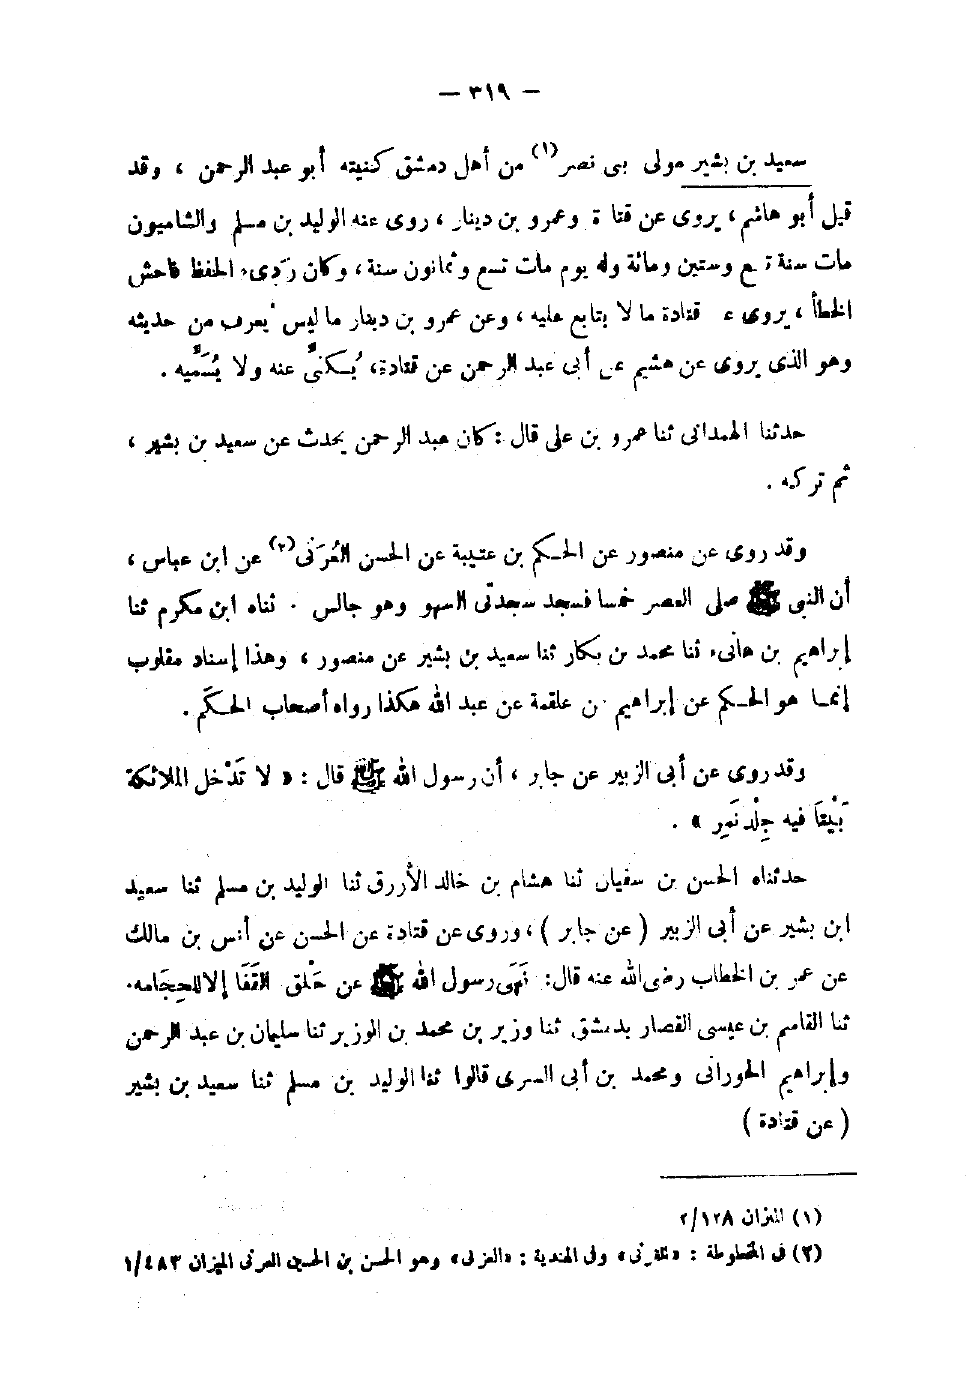 — ٣١٩ —
سعيد بن بشير مولى بنى نصر (١) من أهل دمشق كنيته أبو عبد الرحمن ، وقد
قيل أبو هاشم ، يروى عن قتادة وعمرو بن دينار ، روى عنه الوليد بن مسلم والشاميون
مات سنة تسع وستين ومائة وله يوم مات تسع وثمانون سنة ، وكان ردىء الحفظ فاحش
الخطأ ، يروى عن قتادة ما لا يتابع عليه ، وعن عمرو بن دينار ما ليس يُعرف من حديثه
وهو الذى يروى عن هشيم عن أبى عبد الرحمن عن قتادة، يُكنىّ عنه ولا يُسَمِّيه .
حدثنا الهمدانى ثنا عمرو بن على قال : كان عبد الرحمن يحدث عن سعيد بن بشير ،
ثم تركه .
وقد روى عن منصور عن الحكم بن عتيبة عن الحسن العُرَنى (٢) عن ابن عباس ،
أن النبى ﷺ صلى العصر خمسا فسجد سجدتى السهو وهو جالس . ثناه ابن مكرم ثنا
إبراهيم بن هانىء ثنا محمد بن بكار ثنا سعيد بن بشير عن منصور ، وهذا إسناد مقلوب
إنما هو الحكم عن إبراهيم عن علقمة عن عبد الله هكذا رواه أصحاب الحكَم .
وقد روى عن أبى الزبير عن جابر ، أن رسول الله ﷺ قال : « لا تَدْخل الملائكة
بَيْتًا فيه جِلْد نَمِر » .
حدثناه الحسن بن سفيان ثنا هشام بن خالد الأزرق ثنا الوليد بن مسلم ثنا سعيد
ابن بشير عن أبى الزبير ( عن جابر ) ، وروى عن قتادة عن الحسن عن أنس بن مالك
عن عمر بن الخطاب رضى الله عنه قال: نَهَى رسول الله ﷺ عن حَلْق القَفَا إلا للحِجَامه.
ثنا القاسم بن عيسى القصار بدمشق ثنا وزير بن محمد بن الوزير ثنا سليمان بن عبد الرحمن
وإبراهيم الحورانى ومحمد بن أبى السرى قالوا ثنا الوليد بن مسلم ثنا سعيد بن بشير
( عن قتادة )
(١) الميزان ٢/١٢٨
(٢) فى المخطوطة : وفى الهندية : «العزلى» وهو الحسن بن الحسين العرنى الميزان ١/٤٨٣